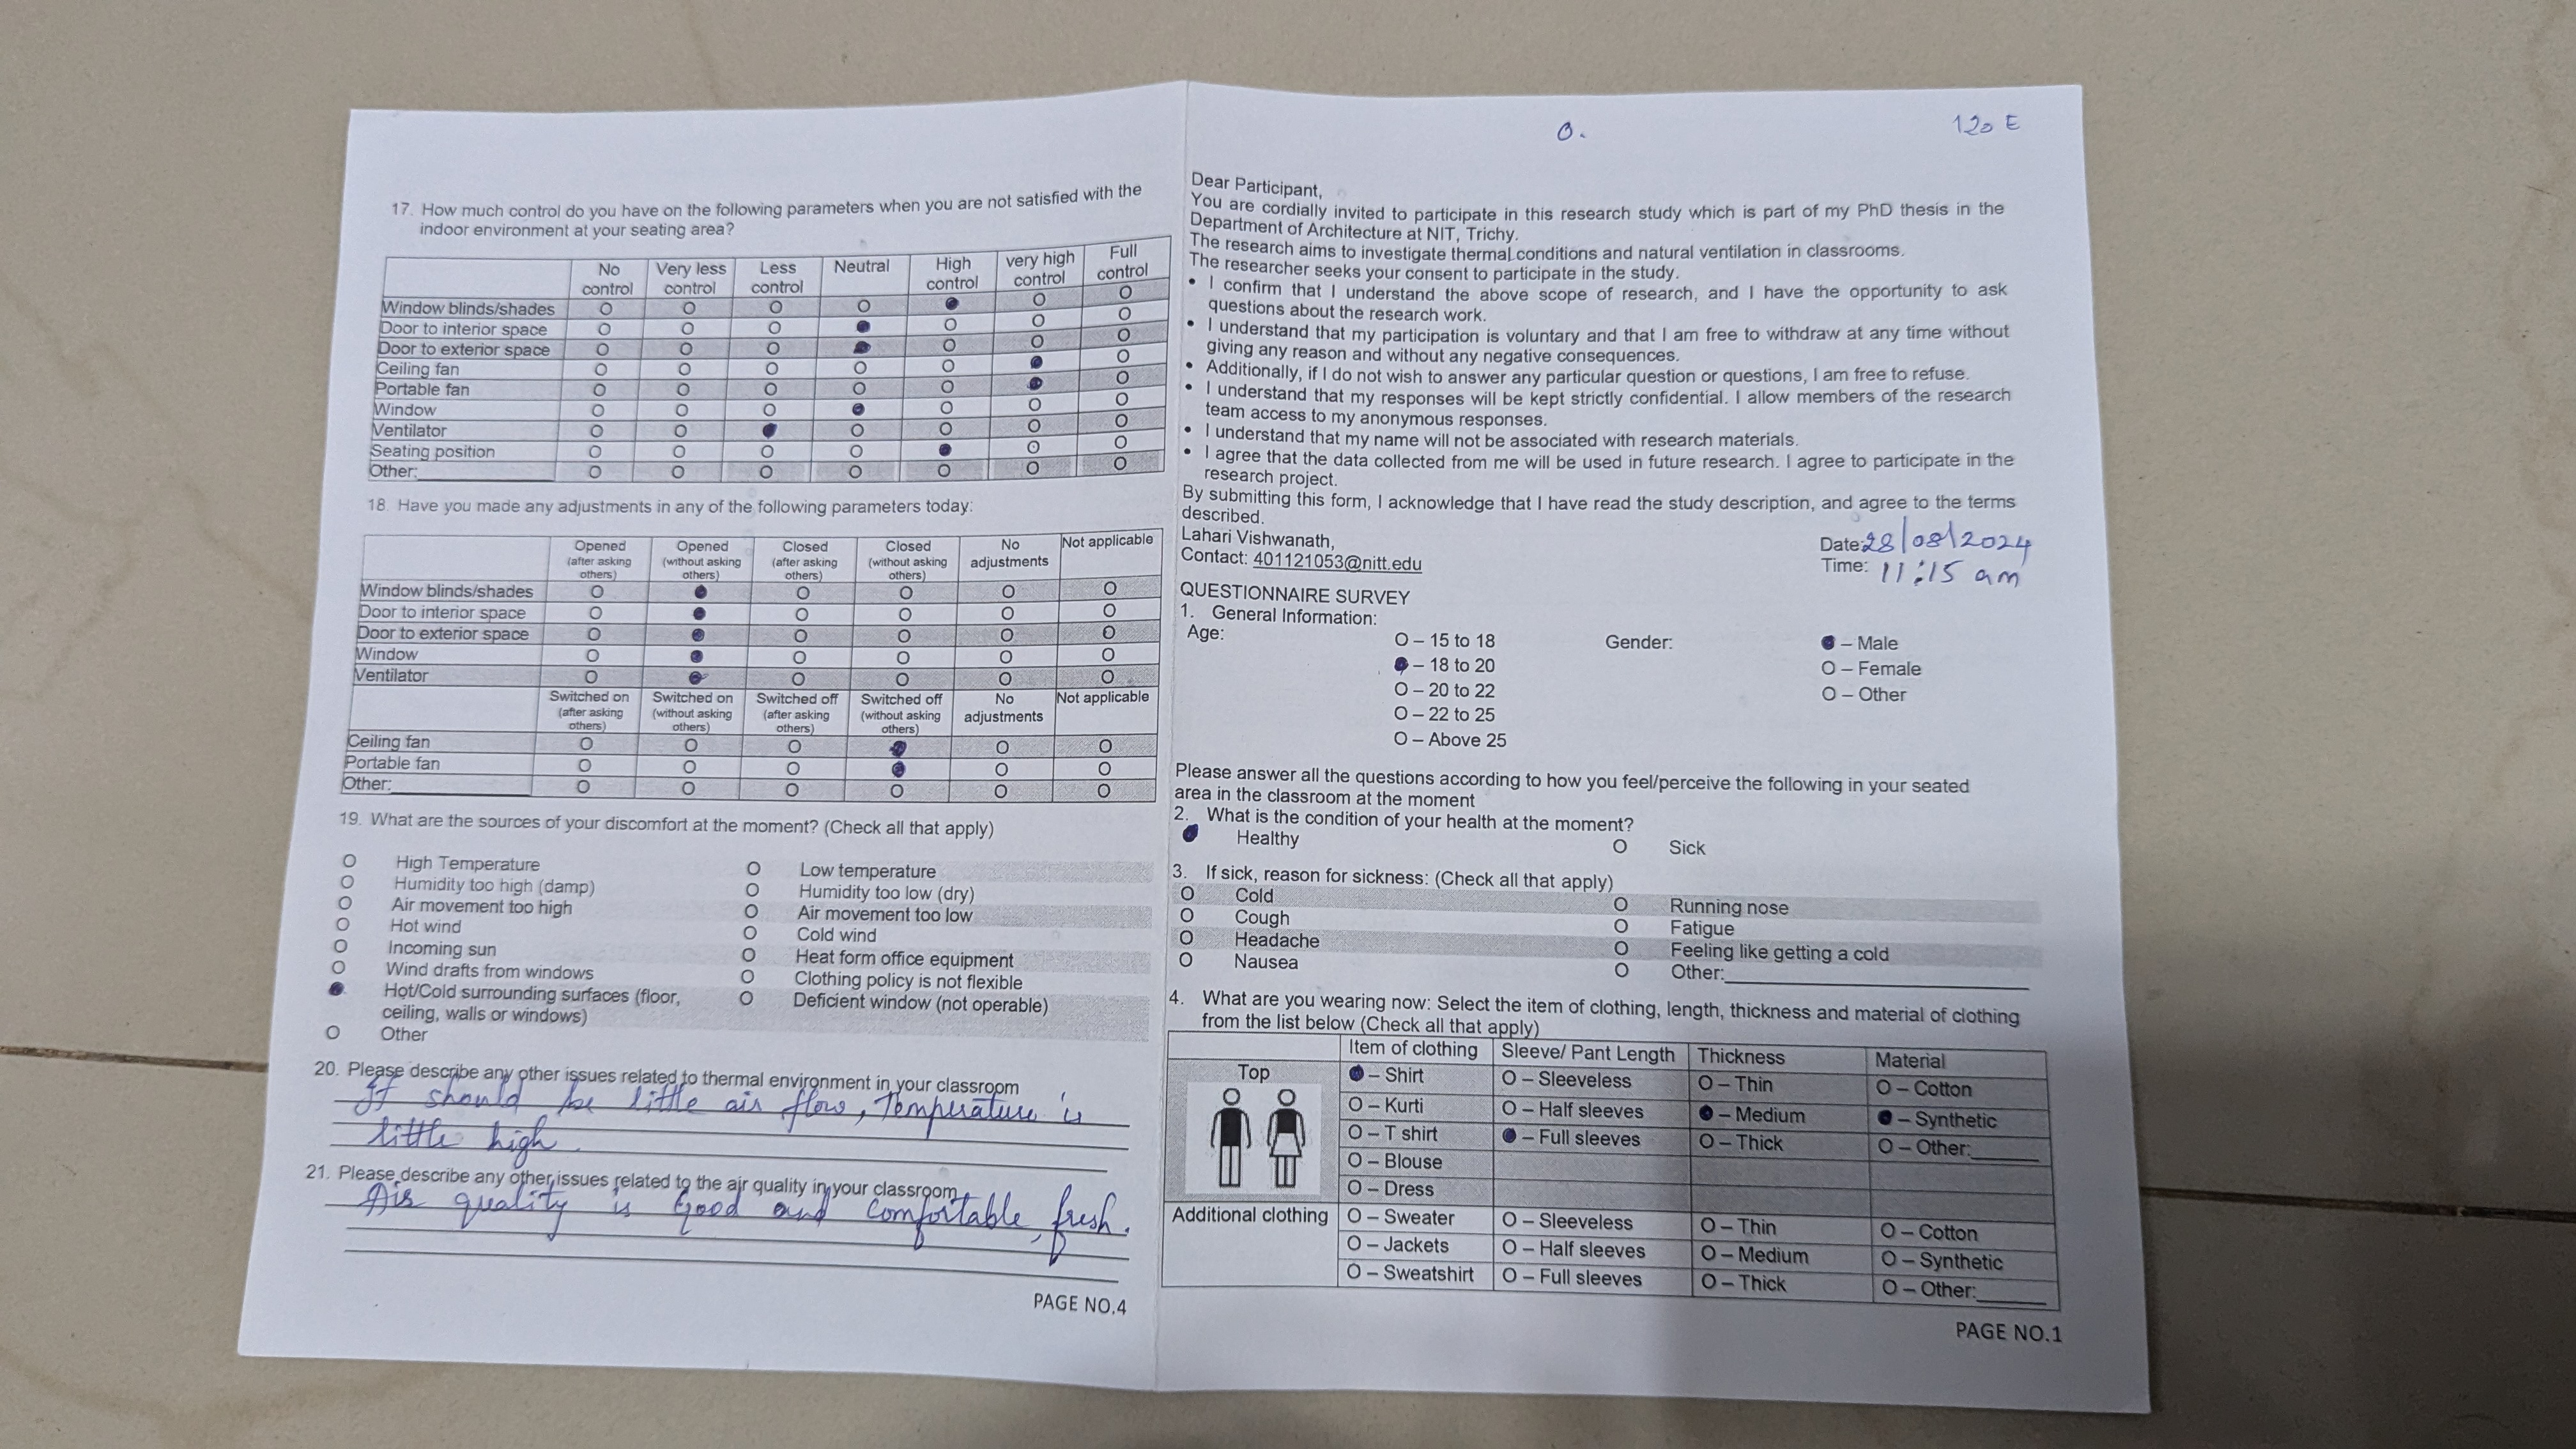 17. How much control do you have on the following parameters when you are not satisfied with the
indoor environment at your seating area?
No control Very less control Less control Neutral High control very high control Full control
Window blinds/shades O O O O ● O O
Door to interior space O O O ● O O O
Door to exterior space O O O ● O O O
Ceiling fan O O O O O ● O
Portable fan O O O O O ● O
Window O O O ● O O O
Ventilator O O ● O O O O
Seating position O O O O ● O O
Other:__________ O O O O O O O
18. Have you made any adjustments in any of the following parameters today:
Opened (after asking others) Opened (without asking others) Closed (after asking others) Closed (without asking others) No adjustments Not applicable
Window blinds/shades O ● O O O O
Door to interior space O ● O O O O
Door to exterior space O ● O O O O
Window O ● O O O O
Ventilator O ● O O O O
Switched on (after asking others) Switched on (without asking others) Switched off (after asking others) Switched off (without asking others) No adjustments Not applicable
Ceiling fan O O O ● O O
Portable fan O O O ● O O
Other:__________ O O O O O O
19. What are the sources of your discomfort at the moment? (Check all that apply)
O High Temperature O Low temperature
O Humidity too high (damp) O Humidity too low (dry)
O Air movement too high O Air movement too low
O Hot wind O Cold wind
O Incoming sun O Heat form office equipment
O Wind drafts from windows O Clothing policy is not flexible
● Hot/Cold surrounding surfaces (floor, O Deficient window (not operable)
ceiling, walls or windows)
O Other
20. Please describe any other issues related to thermal environment in your classroom
It should be little air flow, Temperature is
little high.
21. Please describe any other issues related to the air quality in your classroom
Air quality is Good and Comfortable, fresh.
PAGE NO.4
0. 120 E
Dear Participant,
You are cordially invited to participate in this research study which is part of my PhD thesis in the
Department of Architecture at NIT, Trichy.
The research aims to investigate thermal conditions and natural ventilation in classrooms.
The researcher seeks your consent to participate in the study.
• I confirm that I understand the above scope of research, and I have the opportunity to ask
questions about the research work.
• I understand that my participation is voluntary and that I am free to withdraw at any time without
giving any reason and without any negative consequences.
• Additionally, if I do not wish to answer any particular question or questions, I am free to refuse.
• I understand that my responses will be kept strictly confidential. I allow members of the research
team access to my anonymous responses.
• I understand that my name will not be associated with research materials.
• I agree that the data collected from me will be used in future research. I agree to participate in the
research project.
By submitting this form, I acknowledge that I have read the study description, and agree to the terms
described.
Lahari Vishwanath, Date: 28/08/2024
Contact: 401121053@nitt.edu Time: 11:15 am
QUESTIONNAIRE SURVEY
1. General Information:
Age: O – 15 to 18 Gender: ● – Male
● – 18 to 20 O – Female
O – 20 to 22 O – Other
O – 22 to 25
O – Above 25
Please answer all the questions according to how you feel/perceive the following in your seated
area in the classroom at the moment
2. What is the condition of your health at the moment?
● Healthy O Sick
3. If sick, reason for sickness: (Check all that apply)
O Cold O Running nose
O Cough O Fatigue
O Headache O Feeling like getting a cold
O Nausea O Other:__________
4. What are you wearing now: Select the item of clothing, length, thickness and material of clothing
from the list below (Check all that apply)
Item of clothing Sleeve/ Pant Length Thickness Material
Top ● – Shirt O – Sleeveless O – Thin O – Cotton
O – Kurti O – Half sleeves ● – Medium ● – Synthetic
O – T shirt ● – Full sleeves O – Thick O – Other:______
O – Blouse
O – Dress
Additional clothing O – Sweater O – Sleeveless O – Thin O – Cotton
O – Jackets O – Half sleeves O – Medium O – Synthetic
O – Sweatshirt O – Full sleeves O – Thick O – Other:______
PAGE NO.1